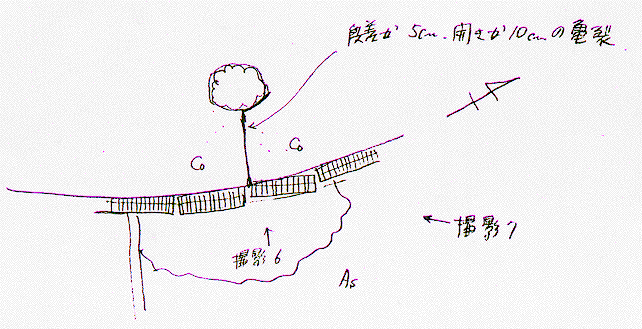 段差が5cm.開きが10cmの亀裂
Co
Co
撮影7
撮影6
As